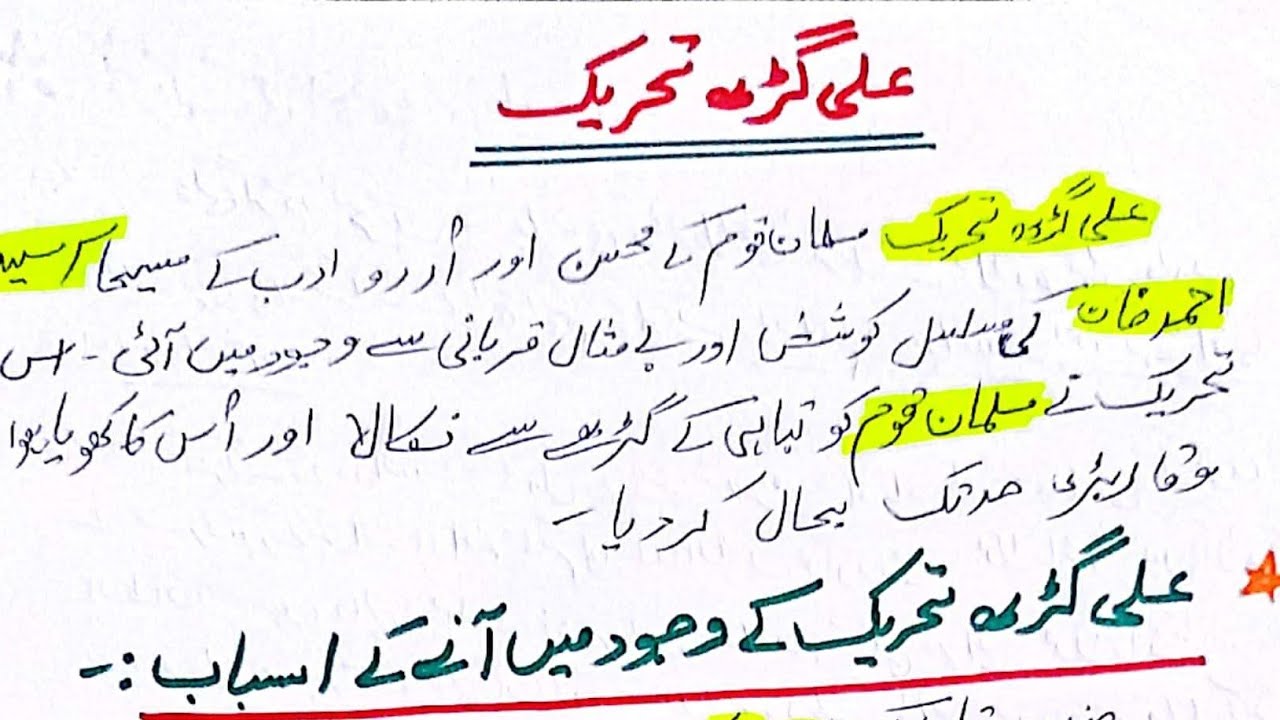 علی گڑھ تحریک
علی گڑھ تحریک مسلمان قوم کے محسن اور اُردو ادب کے مسیحا سرسید
احمد خان کی مسلسل کوشش اور بے مثال قربانی سے وجود میں آئی - اس
تحریک نے مسلمان قوم کو تباہی کے گڑھے سے نکالا اور اُس کا کھویا ہوا
وقار بڑی حد تک بحال کر دیا -
علی گڑھ تحریک کے وجود میں آنے کے اسباب :-